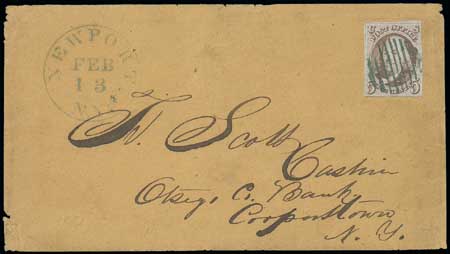 NEWPORT
FEB
13
N.Y.
POST OFFICE
5 5
H. Scott
Cashier
Otsego Co. Bank
Cooperstown
N. Y.